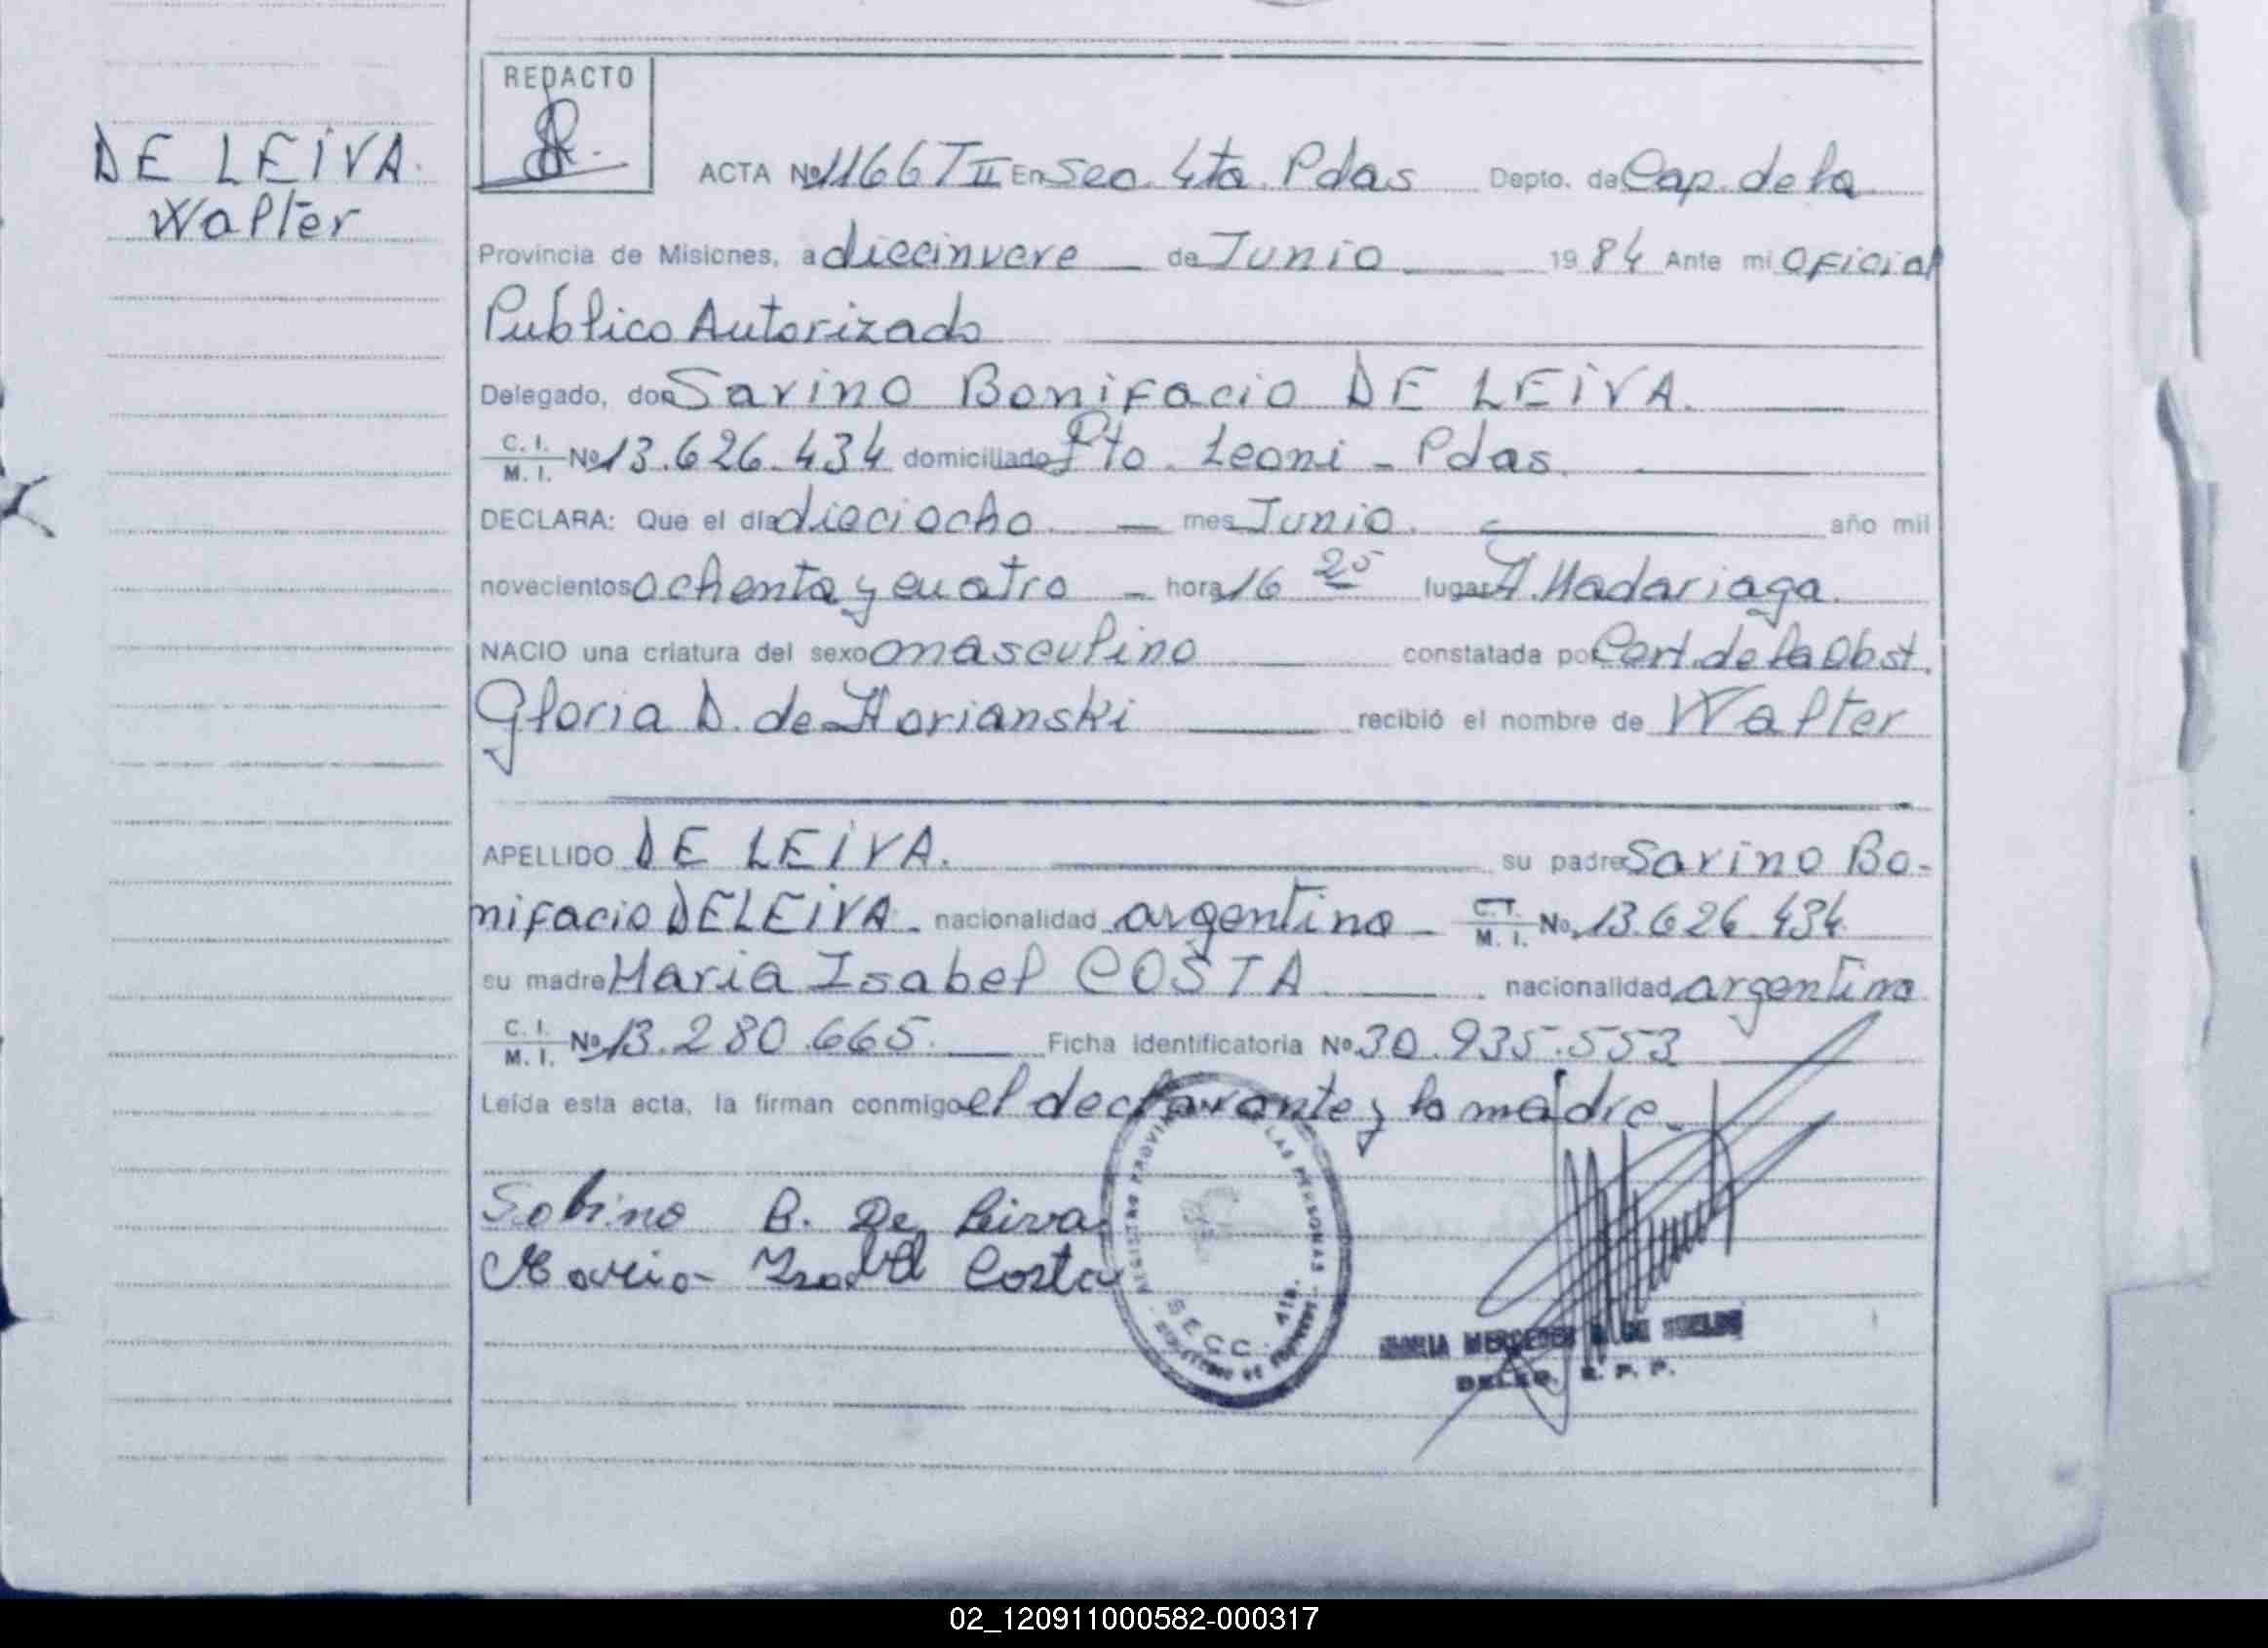 REDACTO
DE LEIVA.
Walter
ACTA Nº 1166 T II En Sec. 4ta. Pdas Depto. de Cap. de la
Provincia de Misiones, a diecinueve de Junio 1984 Ante mi Oficial
Público Autorizado
Delegado, don Savino Bonifacio DE LEIVA.
C. I. M. I. Nº 13.626.434 domiciliado Pto. Leoni - Pdas.
DECLARA: Que el día dieciocho. mes Junio. año mil
novecientos ochenta y cuatro hora 16 25 lugar H. Madariaga.
NACIO una criatura del sexo masculino constatada por Cert. de la Obst.
Gloria D. de recibió el nombre de Walter
APELLIDO DE LEIVA. su padre Savino Bo-
nifacio DE LEIVA. nacionalidad argentina C. I. M. I. No. 13.626.434
su madre Maria Isabel COSTA nacionalidad argentina
C. I. M. I. Nº 13.280.665. Ficha identificatoria Nº 30.935.553
Leída esta acta, la firman conmigo el declarante y la madre.
Sabino B. De Leiva
Maria Isabel Costa
LAS PERSONAS
SECC. 4ta.
MARIA MERCEDES DE
DELEG. R. P. P.
02_120911000582-000317